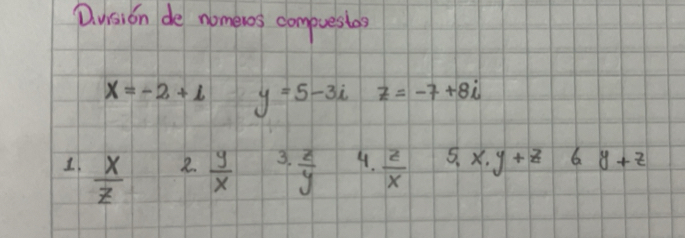 División de numeros compuestos
x = -2 + i y = 5 - 3i z = -7 + 8i
1. x/z 2. y/x 3. z/y 4. z/x 5. x.y + z 6 y + z